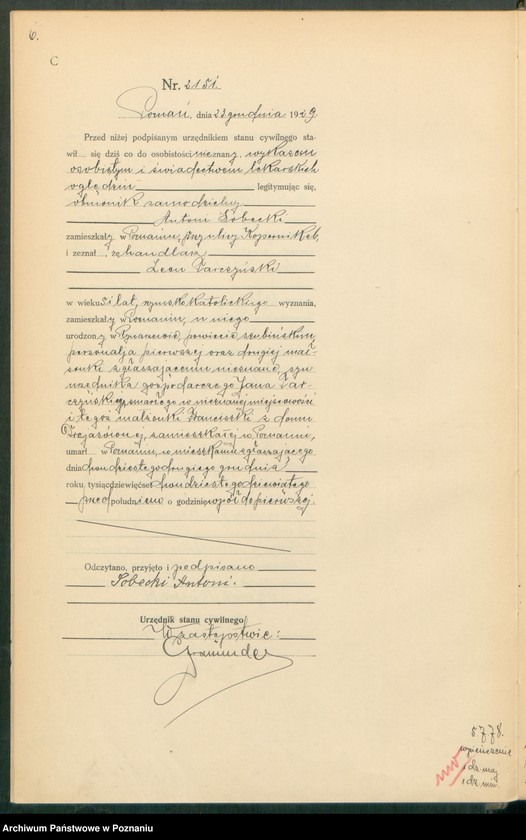 6.
C
Nr. 2151.
Poznań, dnia 23 grudnia 1929
Przed niżej podpisanym urzędnikiem stanu cywilnego sta-
wił się dziś co do osobistości nieznany, wykazem
osobistym i świadectwem lekarskich
oględzin legitymując się,
samodzielny
Antoni Sobecki
zamieszkały w Poznaniu, przy ulicy
i zeznał, że handlarz
Leon Tarczyński
w wieku lat, rzymskokatolickiego wyznania,
zamieszkały w Poznaniu, u niego
urodzony w powiecie szubińskim,
personalja pierwszej oraz drugiej mał-
żonki zgłaszającemu nieznane, syn
urzędnika gospodarczego Jana Tar-
czyńskiego zmarłego w nieznanej miejscowości
i tegoż małżonki Franciszki z domu
zamieszkałej w Poznaniu,
umarł w Poznaniu, w mieszkaniu zgłaszającego
dnia dwudziestego drugiego grudnia
roku tysiąc dziewięćset dwudziestego dziewiątego
przed południem o godzinie wpół do pierwszej.
Odczytano, przyjęto i podpisano
Sobecki Antoni.
Urzędnik stanu cywilnego
W zastępstwie:
Archiwum Państwowe w Poznaniu